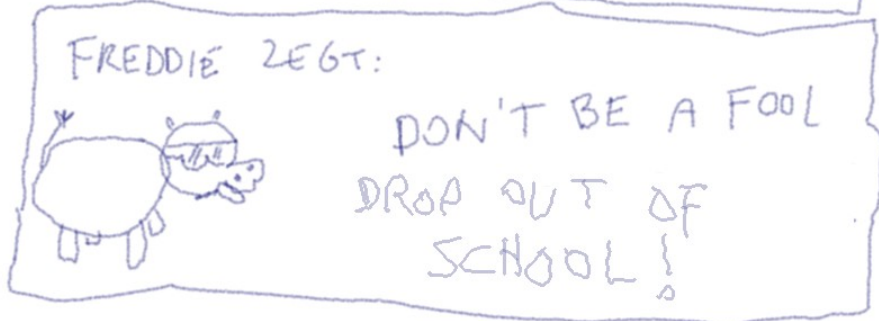 FREDDIE ZEGT:
DON'T BE A FOOL
DROP OUT OF
SCHOOL!